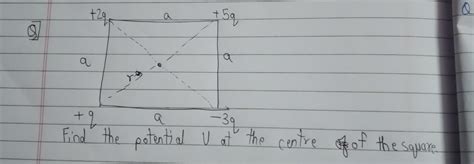 +2q a +5q
Q]
a a
r
+q a -3q
Find the potential V at the centre of the square.
Q